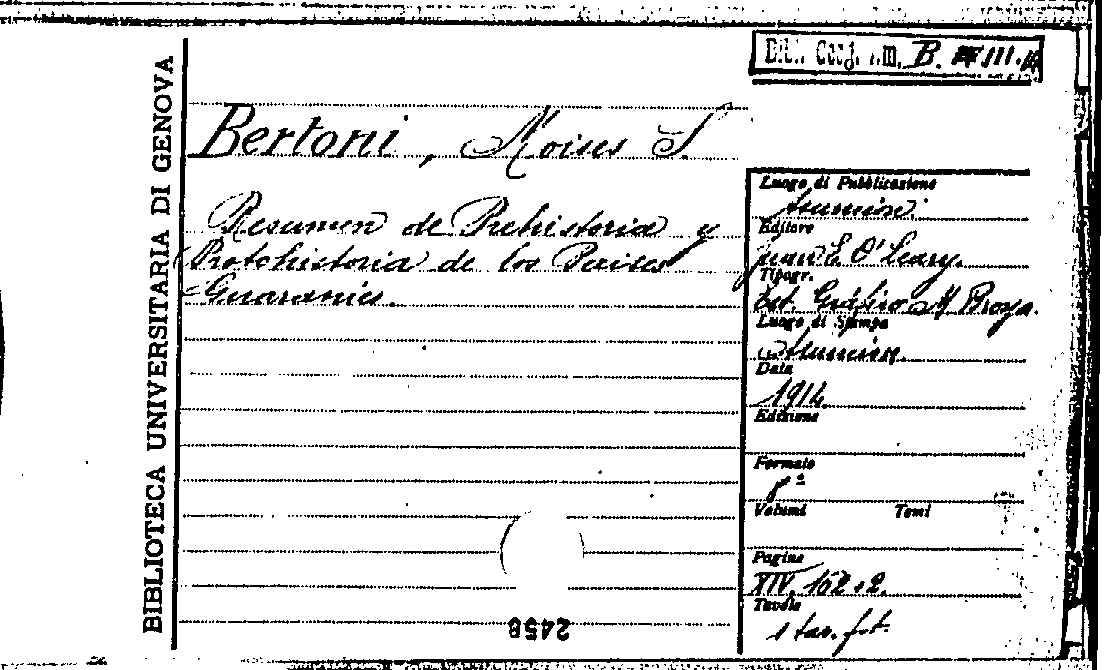 BIBLIOTECA UNIVERSITARIA DI GENOVA
Bibl. Geog. B. III.
Bertoni, Moises S.
Resumen de Prehistoria y
Protohistoria de los Paises
Guaranies.
Luogo di Pubblicazione
Asuncion.
Editore
Juan E. O'Leary.
Tipogr.
Est. Gráfico M. Brossa.
Luogo di Stampa
Asuncion.
Data
1914
Edizione
Formato
8º
Volumi Tomi
Pagine
XIV. 162+2.
Tavole
1 tav. fot.
2458